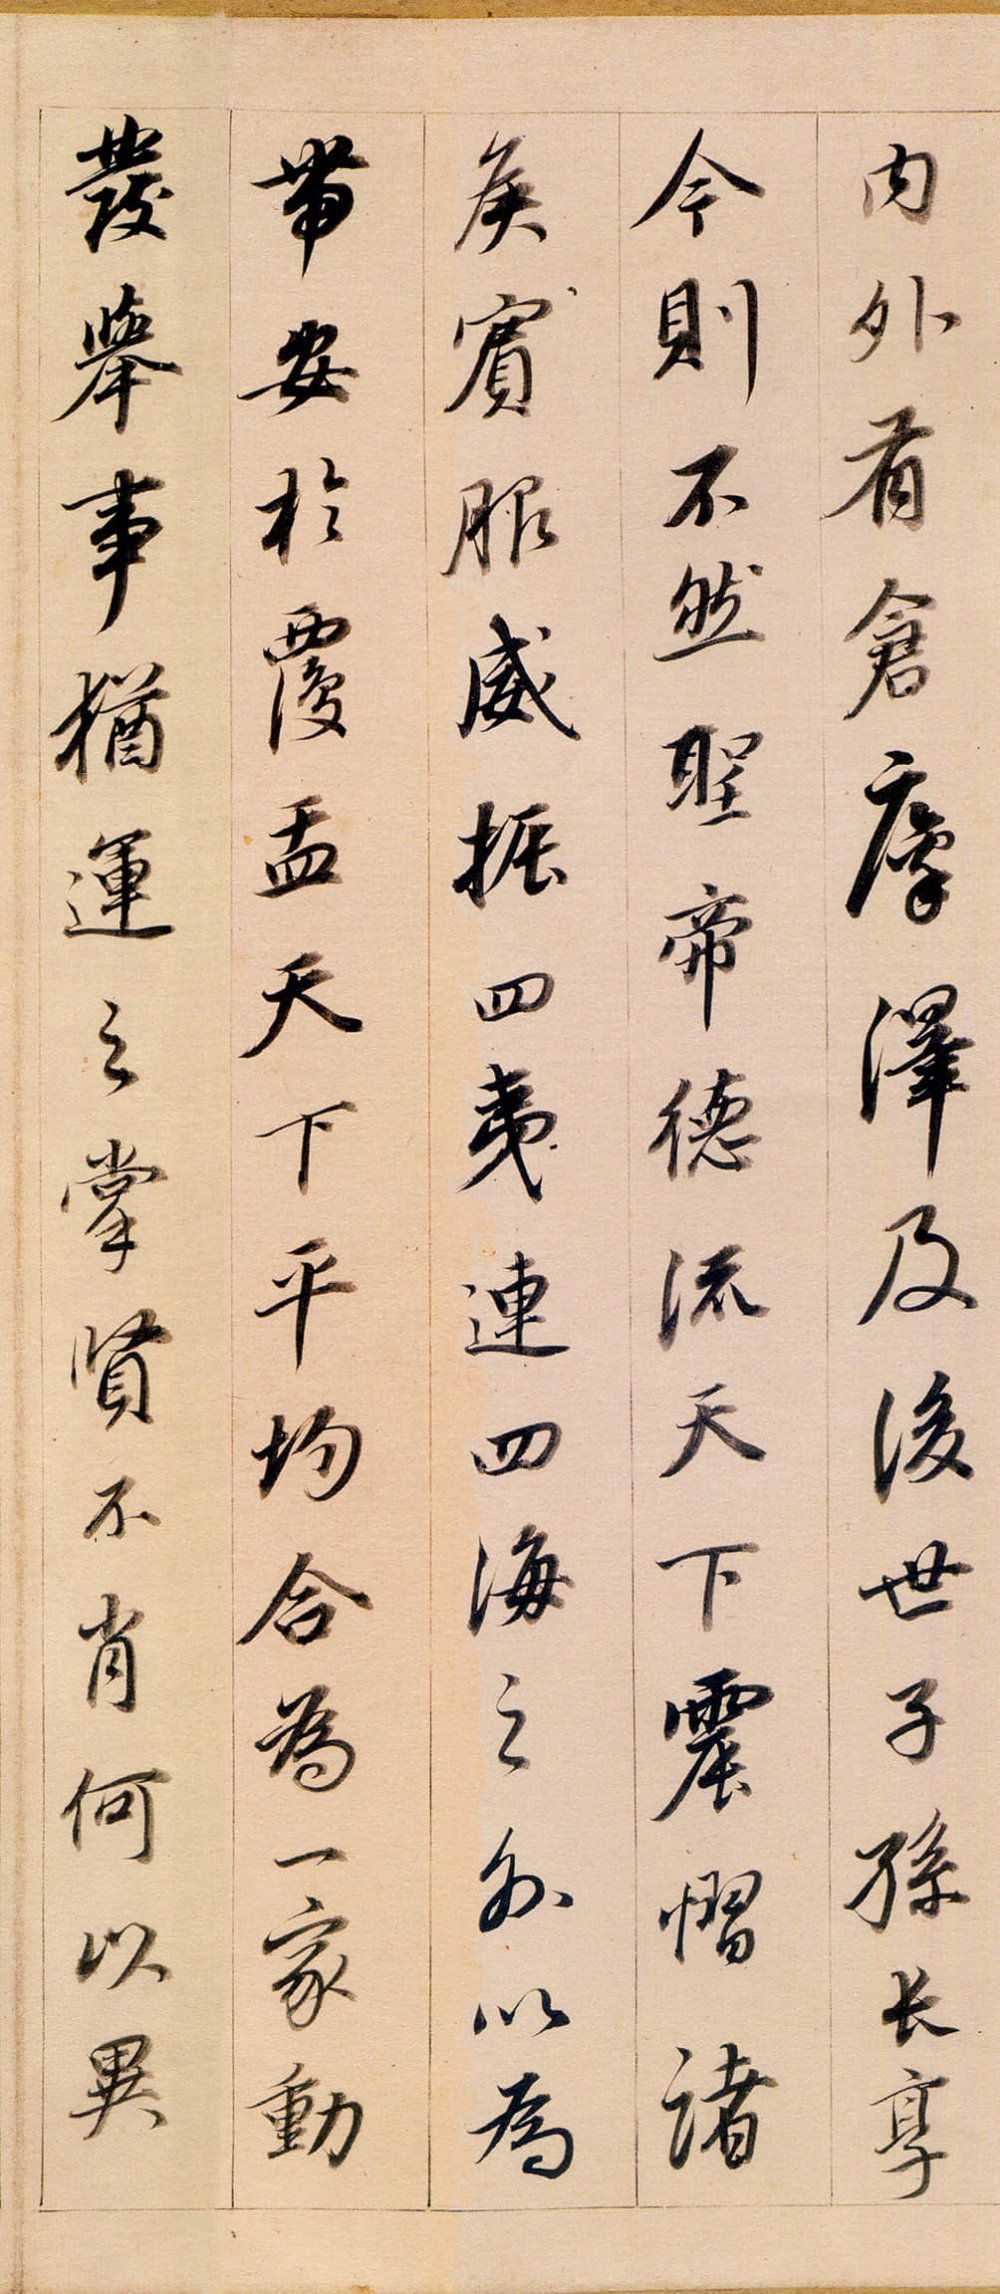 內外有倉廩澤及後世子孫長享
今則不然聖帝德流天下震慴諸
侯賓服威振四夷連四海之外以為
帶安於覆盂天下平均合為一家動
發舉事猶運之掌賢不肖何以異